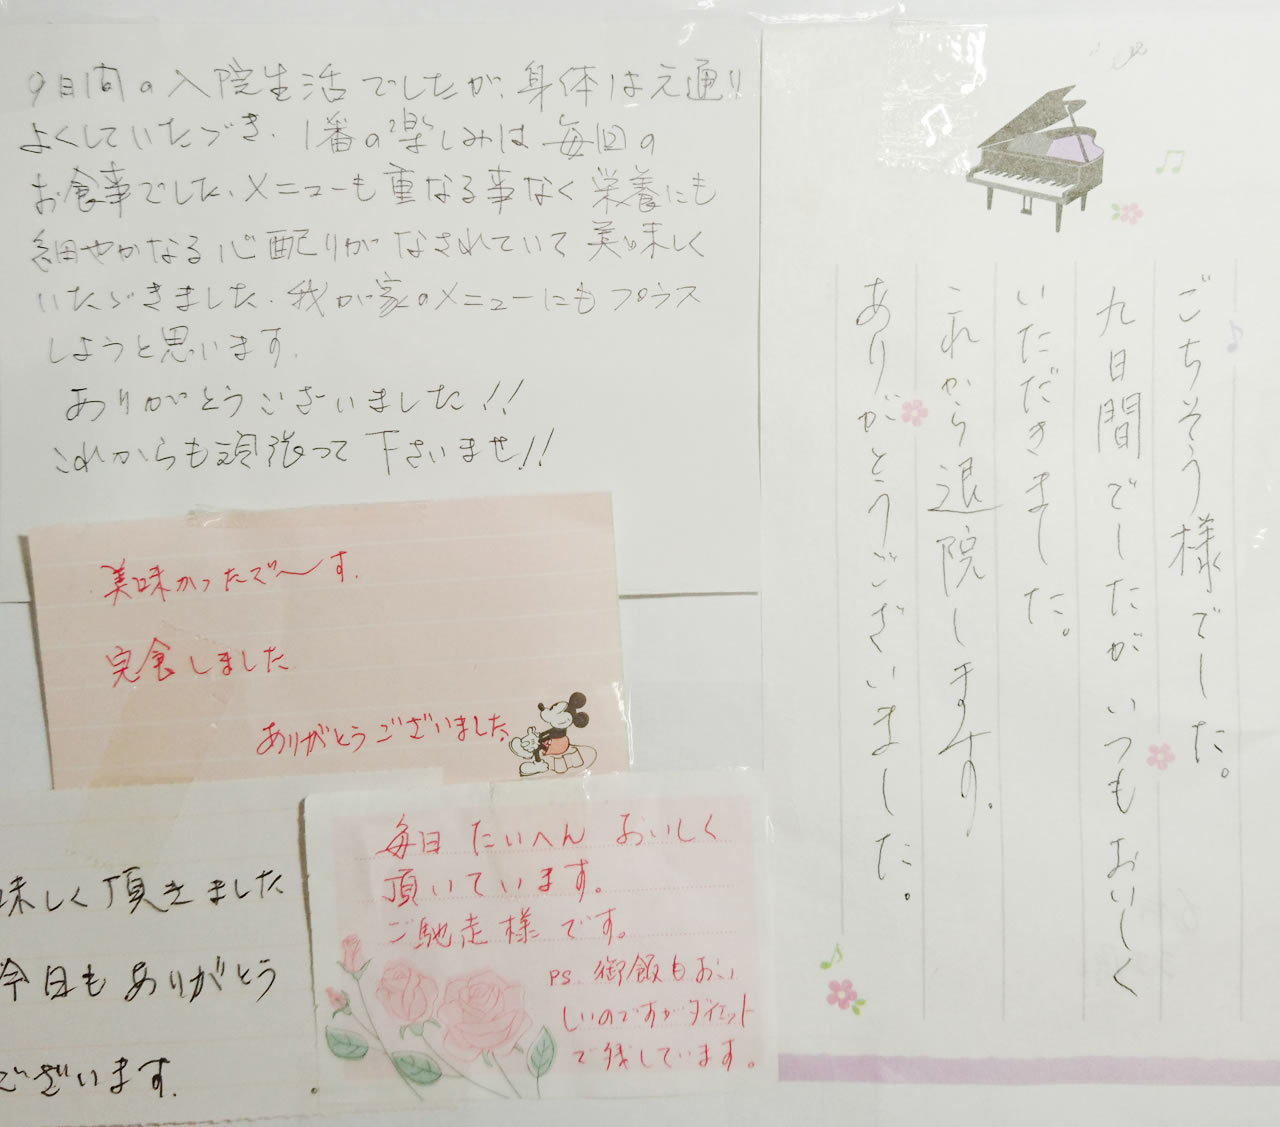 9日間の入院生活でしたが、身体は元通り
よくしていただき、1番の楽しみは毎回の
お食事でした、メニューも重なる事なく栄養にも
細やかなる心配りがなされていて美味しく
いただきました。我が家のメニューにもプラス
しようと思います。
ありがとうございました!!
これからも頑張って下さいませ!!
美味かったで〜す。
完食しました
ありがとうございました
味しく頂きました
今日もありがとう
ございます.
毎日たいへんおいしく
頂いています。
ご馳走様です。
PS.御飯もおい
しいのですがダイエット
で残しています。
ごちそう様でした。
九日間でしたがいつもおいしく
いただきました。
これから退院します。
ありがとうございました。